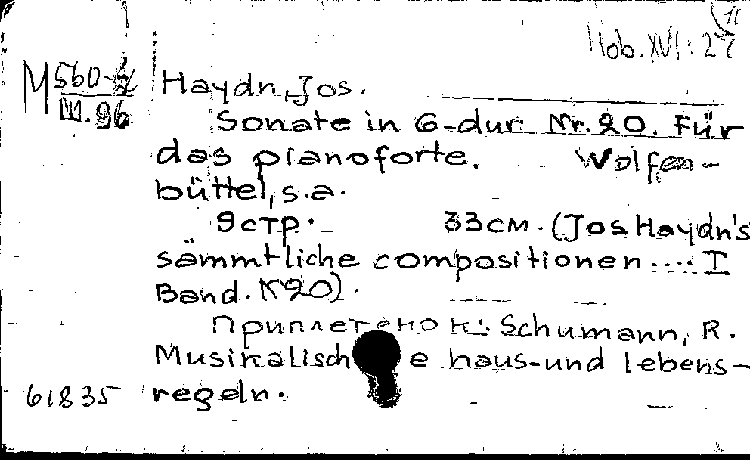 Hob. XVI: 27
M 560-
III.96
Haydn, Jos.
Sonate in G-dur Nr. 20. Für
das pianoforte. Wolfen-
büttel, s.a.
9 стр. 33 см. (Jos Haydn's
sämmtliche compositionen .... I
Band. N20).
Приплетено к: Schumann, R.
Musikalische haus-und lebens-
61835 regeln.